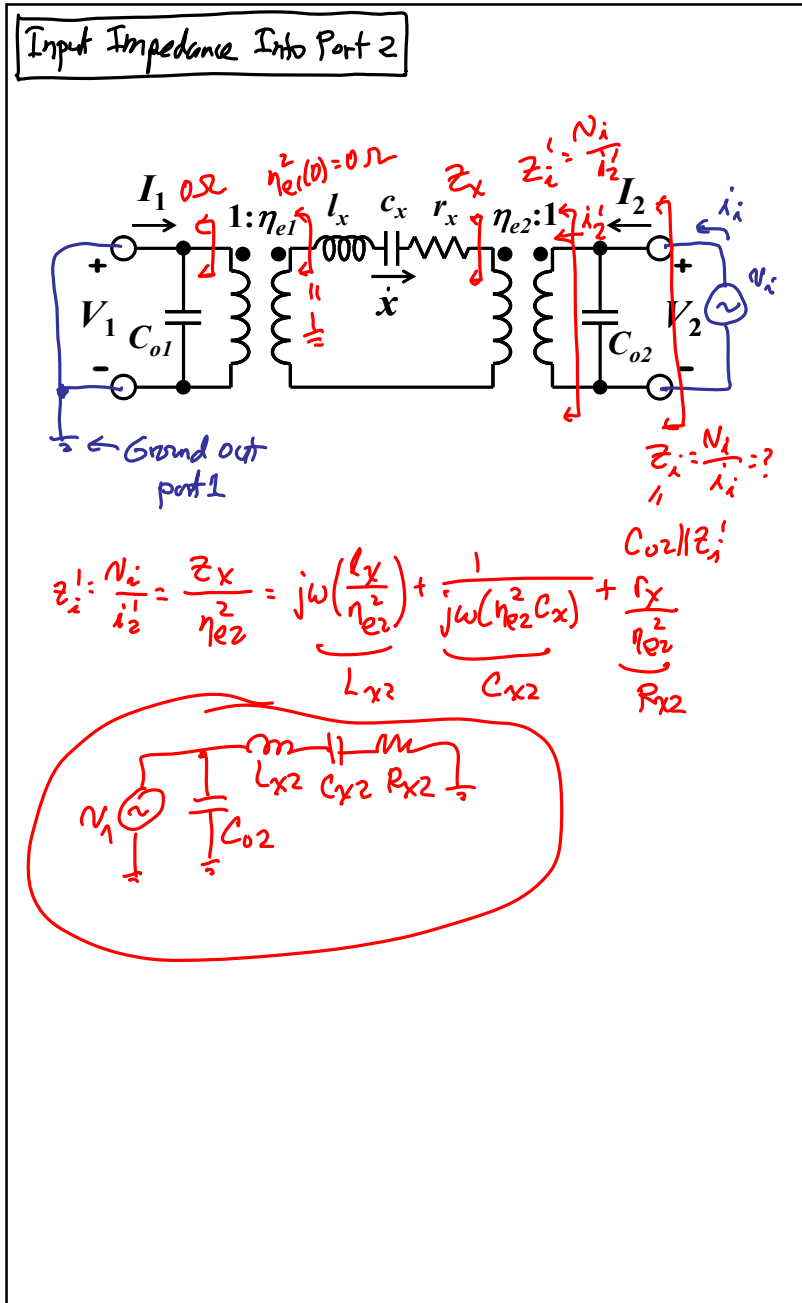 Input Impedance Into Port 2
I₁ 0Ω ηe1²(0)=0Ω Zx Zi'=Ni/i2' I₂ ii
1:ηe1 lx cx rx ηe2:1 i2'
+ ẋ + vi
V₁ Co1 Co2 V₂
- -
← Ground out
port 1
Zi=Ni/ii=?
Co2||Zi'
zi'=Ni/i2'=Zx/ηe2²=jω(lx/ηe2²)+1/(jω(ηe2²Cx))+rx/ηe2²
Lx2 Cx2 Rx2
Lx2 Cx2 Rx2
N1 Co2